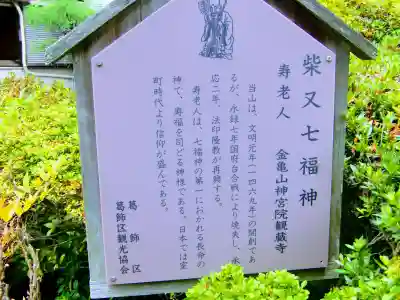 柴又七福神
寿老人　金亀山神宮院観蔵寺
当山は、文明元年（一四六九年）の開創であ
るが、永禄七年国府台合戦により焼失し、承
応二年、法印隆教が再興する。
寿老人は、七福神の第一におかれる長命の
神で、寿福を司どる神様である。日本では室
町時代より信仰が盛んである。
葛飾区
葛飾区観光協会